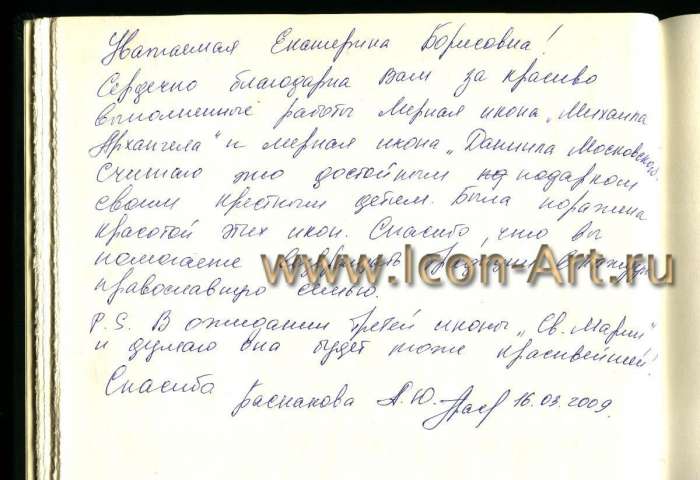 Уважаемая Екатерина Борисовна!
Сердечно благодарна Вам за красиво
выполненные работы Мерная икона „Михаила
Архангела" и мерная икона „Даниила Московского".
Считаю это достойным подарком
своим крестным детям. Была поражена
красотой этих икон. Спасибо, что вы
помогаете традицию в каждую
www.Icon-Art.ru
православную семью.
P.S. В ожидании третей иконы „Св. Марии"
и думаю она будет тоже красивейшей!
Спасибо
А.Ю. 16.03.2009.